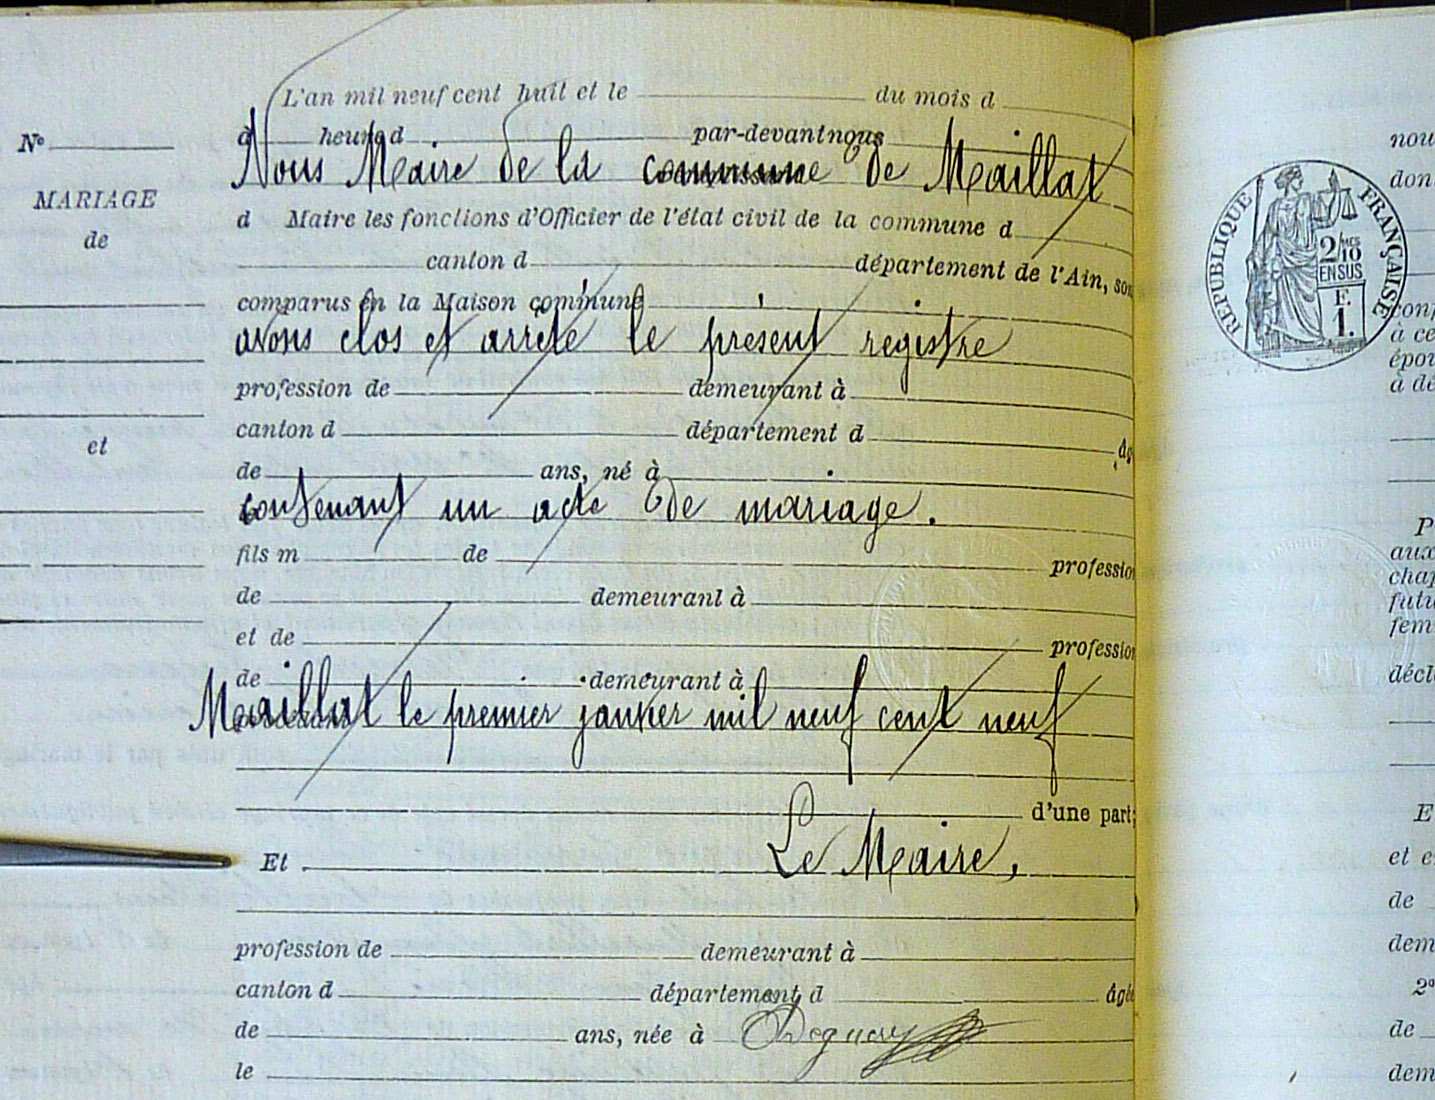 L'an mil neuf cent huit et le du mois d
N° à heure d par-devant nous
Nous Maire de la commune de Maillat
MARIAGE
d Maire les fonctions d'Officier de l'état civil de la commune d
de
canton d département de l'Ain, son
comparus en la Maison commune
avons clos et arrêté le présent registre
profession de demeurant à
canton d département d âg
et
de ans, né à
contenant un acte de mariage.
fils m de profession
de demeurant à
et de profession
de demeurant à
Maillat le premier janvier mil neuf cent neuf
d'une part;
Le Maire,
Et
profession de demeurant à
canton d département d âgée
de ans, née à
le
nou
don
RÉPUBLIQUE FRANÇAISE
2/10 MES
EN SUS
F.
1.
conf
à ce
épou
à dé
P
aux
chap
futu
fem
décl
E
et e
de
dem
2°
de
dem